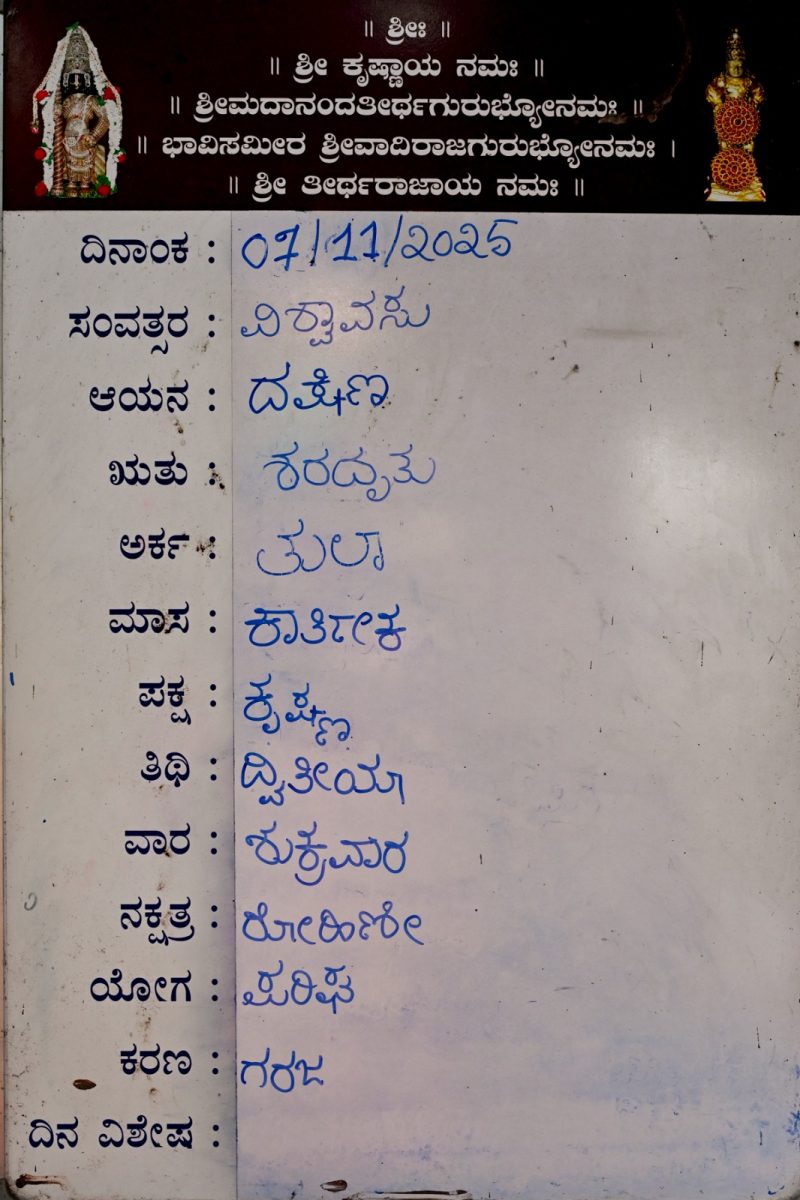 ॥ ಶ್ರೀಃ ॥
॥ ಶ್ರೀ ಕೃಷ್ಣಾಯ ನಮಃ ॥
॥ ಶ್ರೀಮದಾನಂದತೀರ್ಥಗುರುಭ್ಯೋನಮಃ ॥
॥ ಭಾವಿಸಮೀರ ಶ್ರೀವಾದಿರಾಜಗುರುಭ್ಯೋನಮಃ ।
॥ ಶ್ರೀ ತೀರ್ಥರಾಜಾಯ ನಮಃ ॥
ದಿನಾಂಕ : 07/11/2025
ಸಂವತ್ಸರ : ವಿಶ್ವಾವಸು
ಆಯನ : ದಕ್ಷಿಣ
ಋತು : ಶರದೃತು
ಅರ್ಕ : ತುಲಾ
ಮಾಸ : ಕಾರ್ತೀಕ
ಪಕ್ಷ : ಕೃಷ್ಣ
ತಿಥಿ : ದ್ವಿತೀಯಾ
ವಾರ : ಶುಕ್ರವಾರ
ನಕ್ಷತ್ರ : ರೋಹಿಣೀ
ಯೋಗ : ಪರಿಘ
ಕರಣ : ಗರಜ
ದಿನ ವಿಶೇಷ :